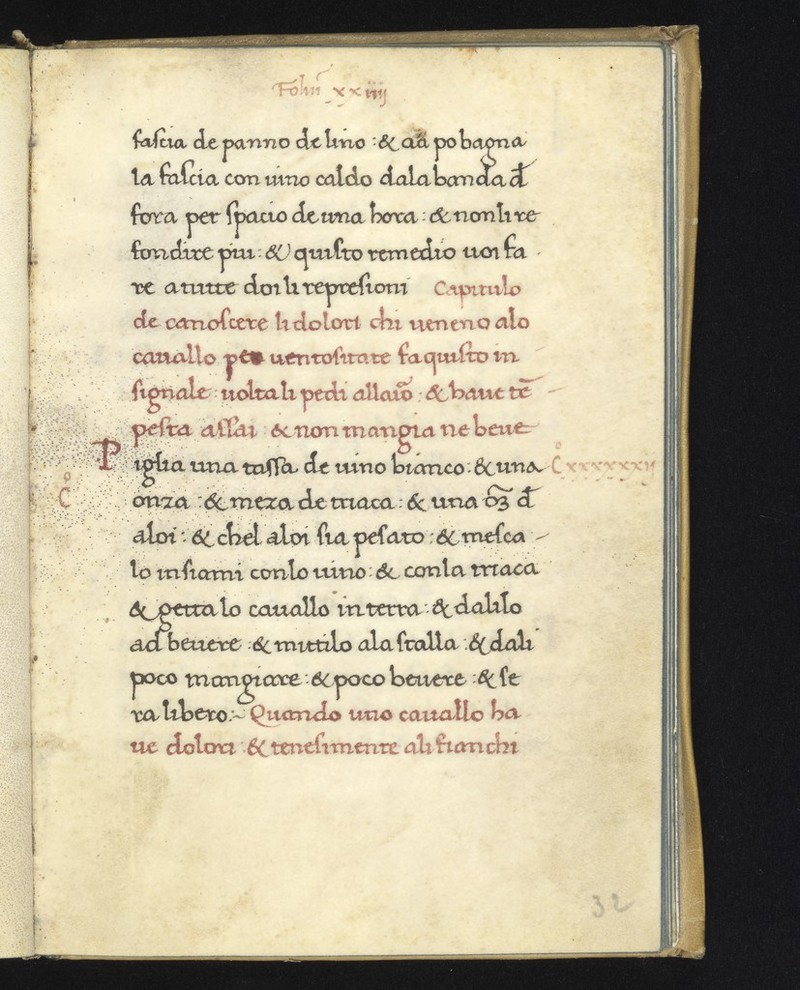 Foliũ xxiiij
faſcia de panno de lino : & aã po bagna
la faſcia con uino caldo dala banda đ
fora per ſpacio de una hora : & non li re
fondire piu : & quiſto remedio uoi fa
re a tutte doi li repreſioni Capitulo
de canoſcere li dolori chi ueneno alo
cauallo per uentoſitate fa quiſto in
ſignale : uolta li pedi allaio᷃ : & haue tē
peſta aſſai & non mangia ne beue
Piglia una taſſa de uino bianco : & una
C° xxxxxxxij
C°
onza : & meza de triaca : & una o᷃ȝ đ
aloi : & chel aloi ſia peſato : & meſca
lo inſiami con lo uino : & con la triaca
& getta lo cauallo in terra : & dalilo
ad beuere : & mittilo ala ſtalla : & dali
poco mangiare : & poco beuere : & ſe
ra libero :~ Quando uno cauallo ha
ue dolori : & teneſimente ali fianchi
32